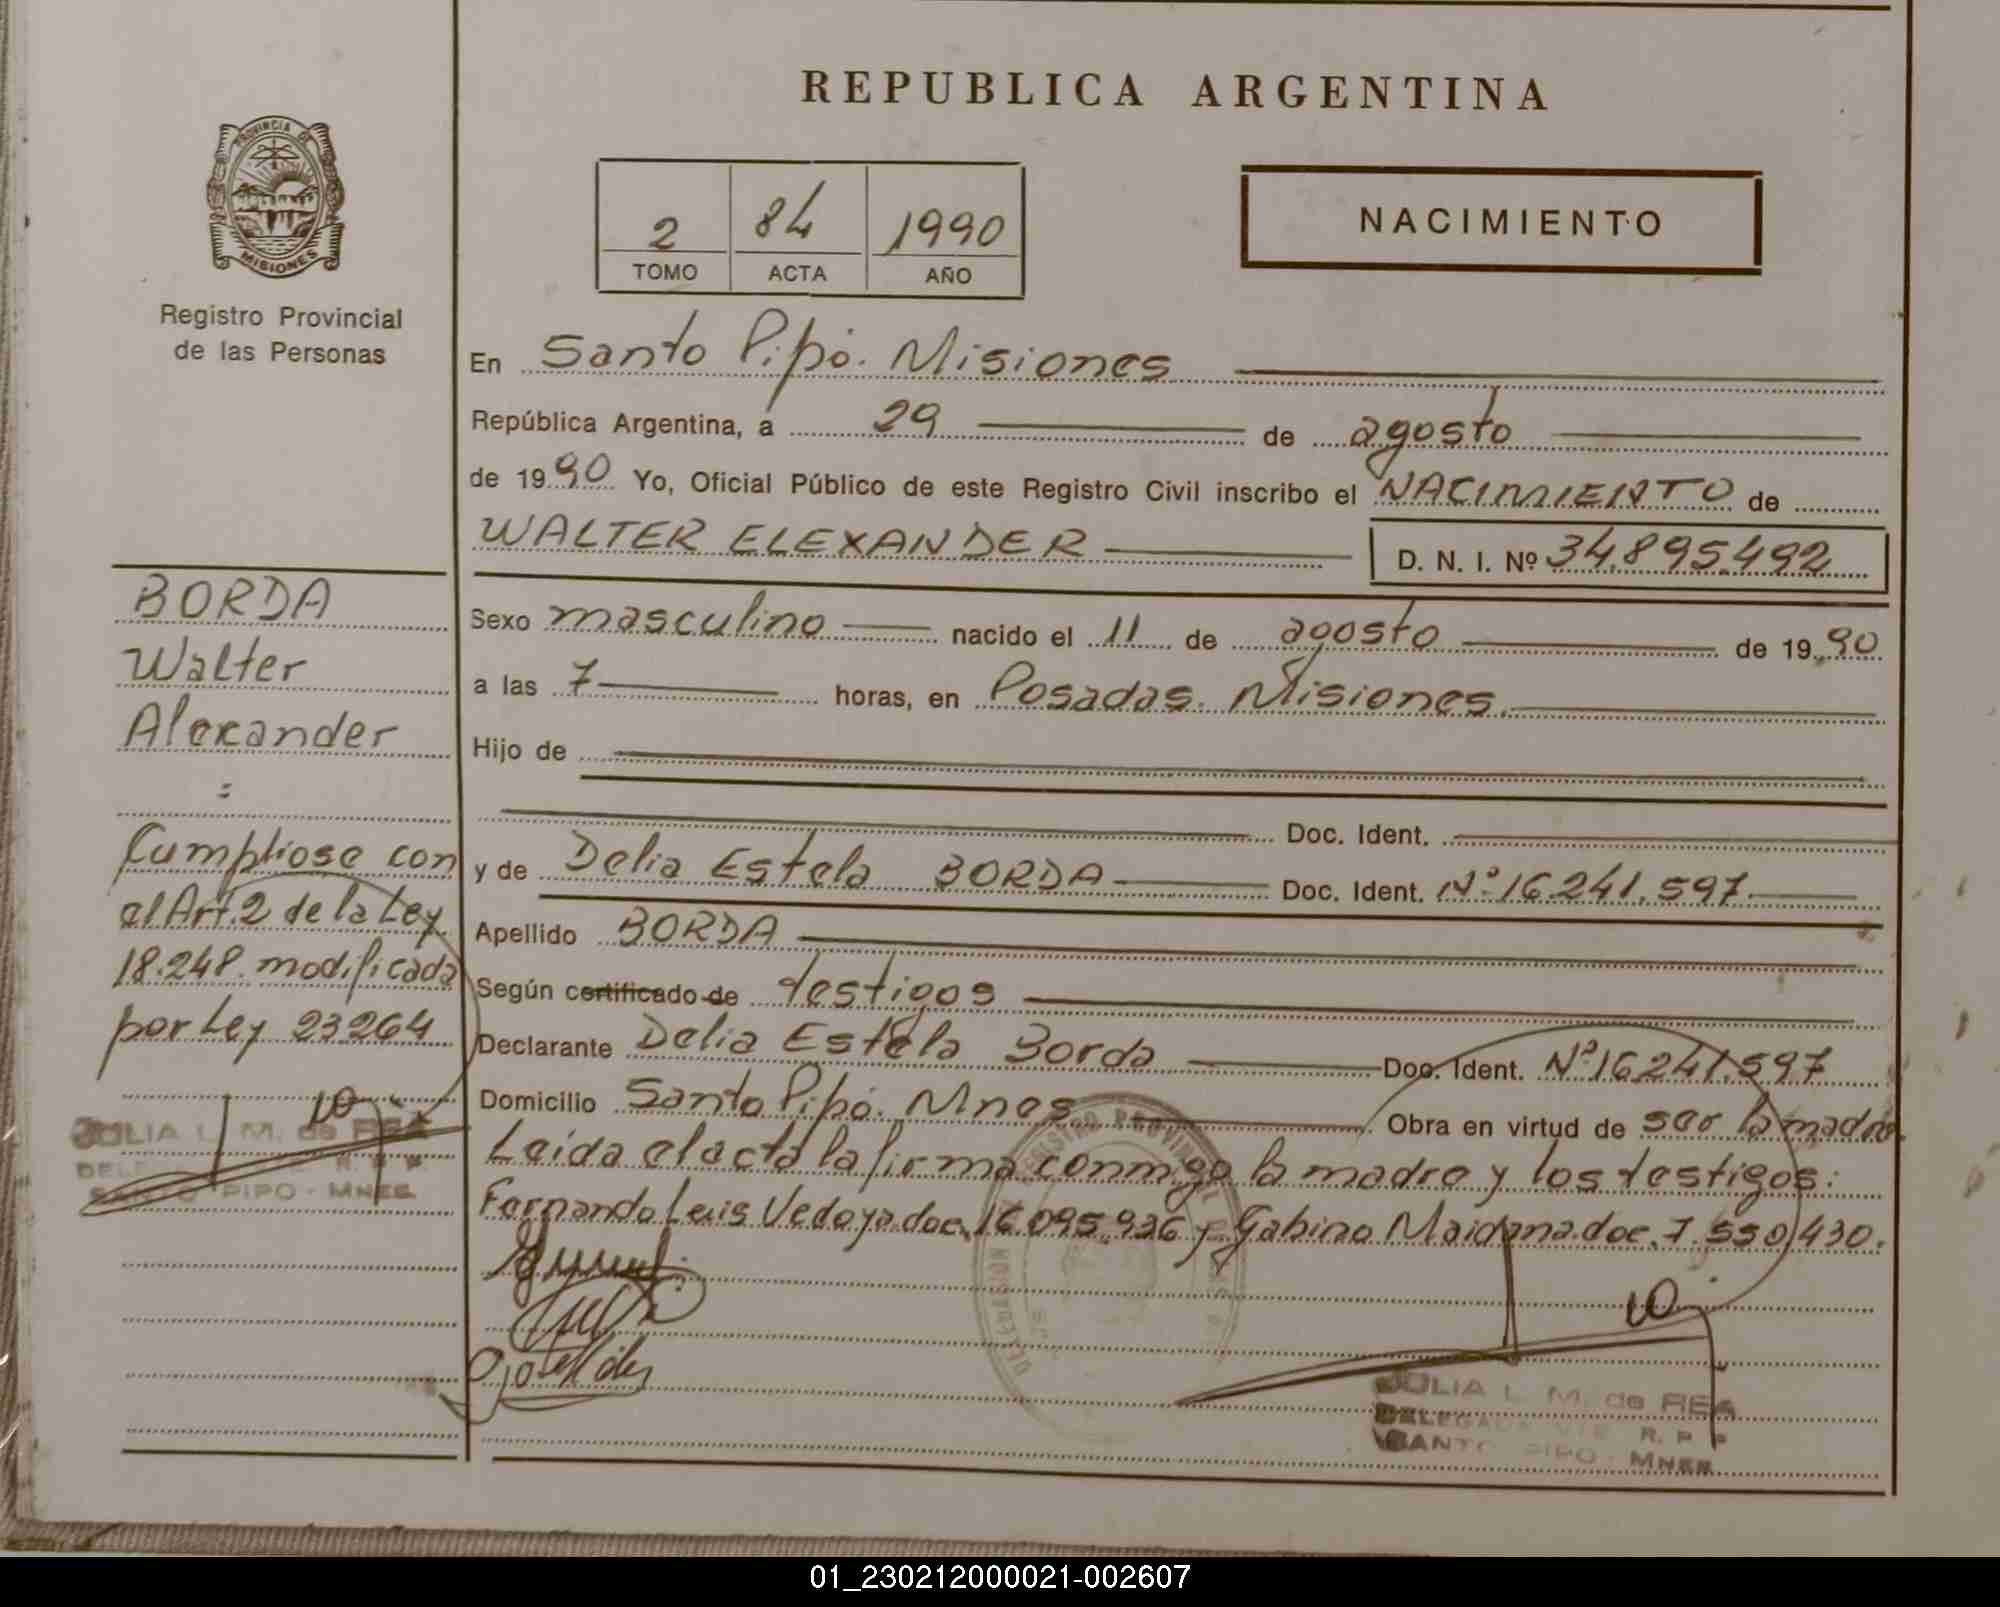 REPUBLICA ARGENTINA
PROVINCIA DE
MISIONES
Registro Provincial
de las Personas
2 84 1990
TOMO ACTA AÑO
NACIMIENTO
En Santo Pipó. Misiones
República Argentina, a 29 de agosto
de 1990 Yo, Oficial Público de este Registro Civil inscribo el NACIMIENTO de
WALTER ELEXANDER D. N. I. Nº 34.895.492
Sexo masculino nacido el 11 de agosto de 1990
a las 7 horas, en Posadas. Misiones.
Hijo de
Doc. Ident.
y de Delia Estela BORDA Doc. Ident. Nº 16.241.597
Apellido BORDA
Según certificado de testigos
Declarante Delia Estela Borda Doc. Ident. Nº 16.241.597
Domicilio Santo Pipó. Mnes Obra en virtud de ser la madre.
Leída el acta la firma conmigo la madre y los testigos:
Fernando Luis Vedoya doc. 16.095.936 y Gabino Maidana doc. 7.550.430.
JULIA L. M. de REA
DELEGADA R. P. P.
SANTO PIPO - MNES.
BORDA
Walter
Alexander
=
Cumpliose con
el Art. 2 de la Ley
18.248 modificada
por Ley 23264
JULIA L. M. de REA
R. P. P.
SANTO PIPO - MNES.
REGISTRO PROVINCIAL
01_230212000021-002607